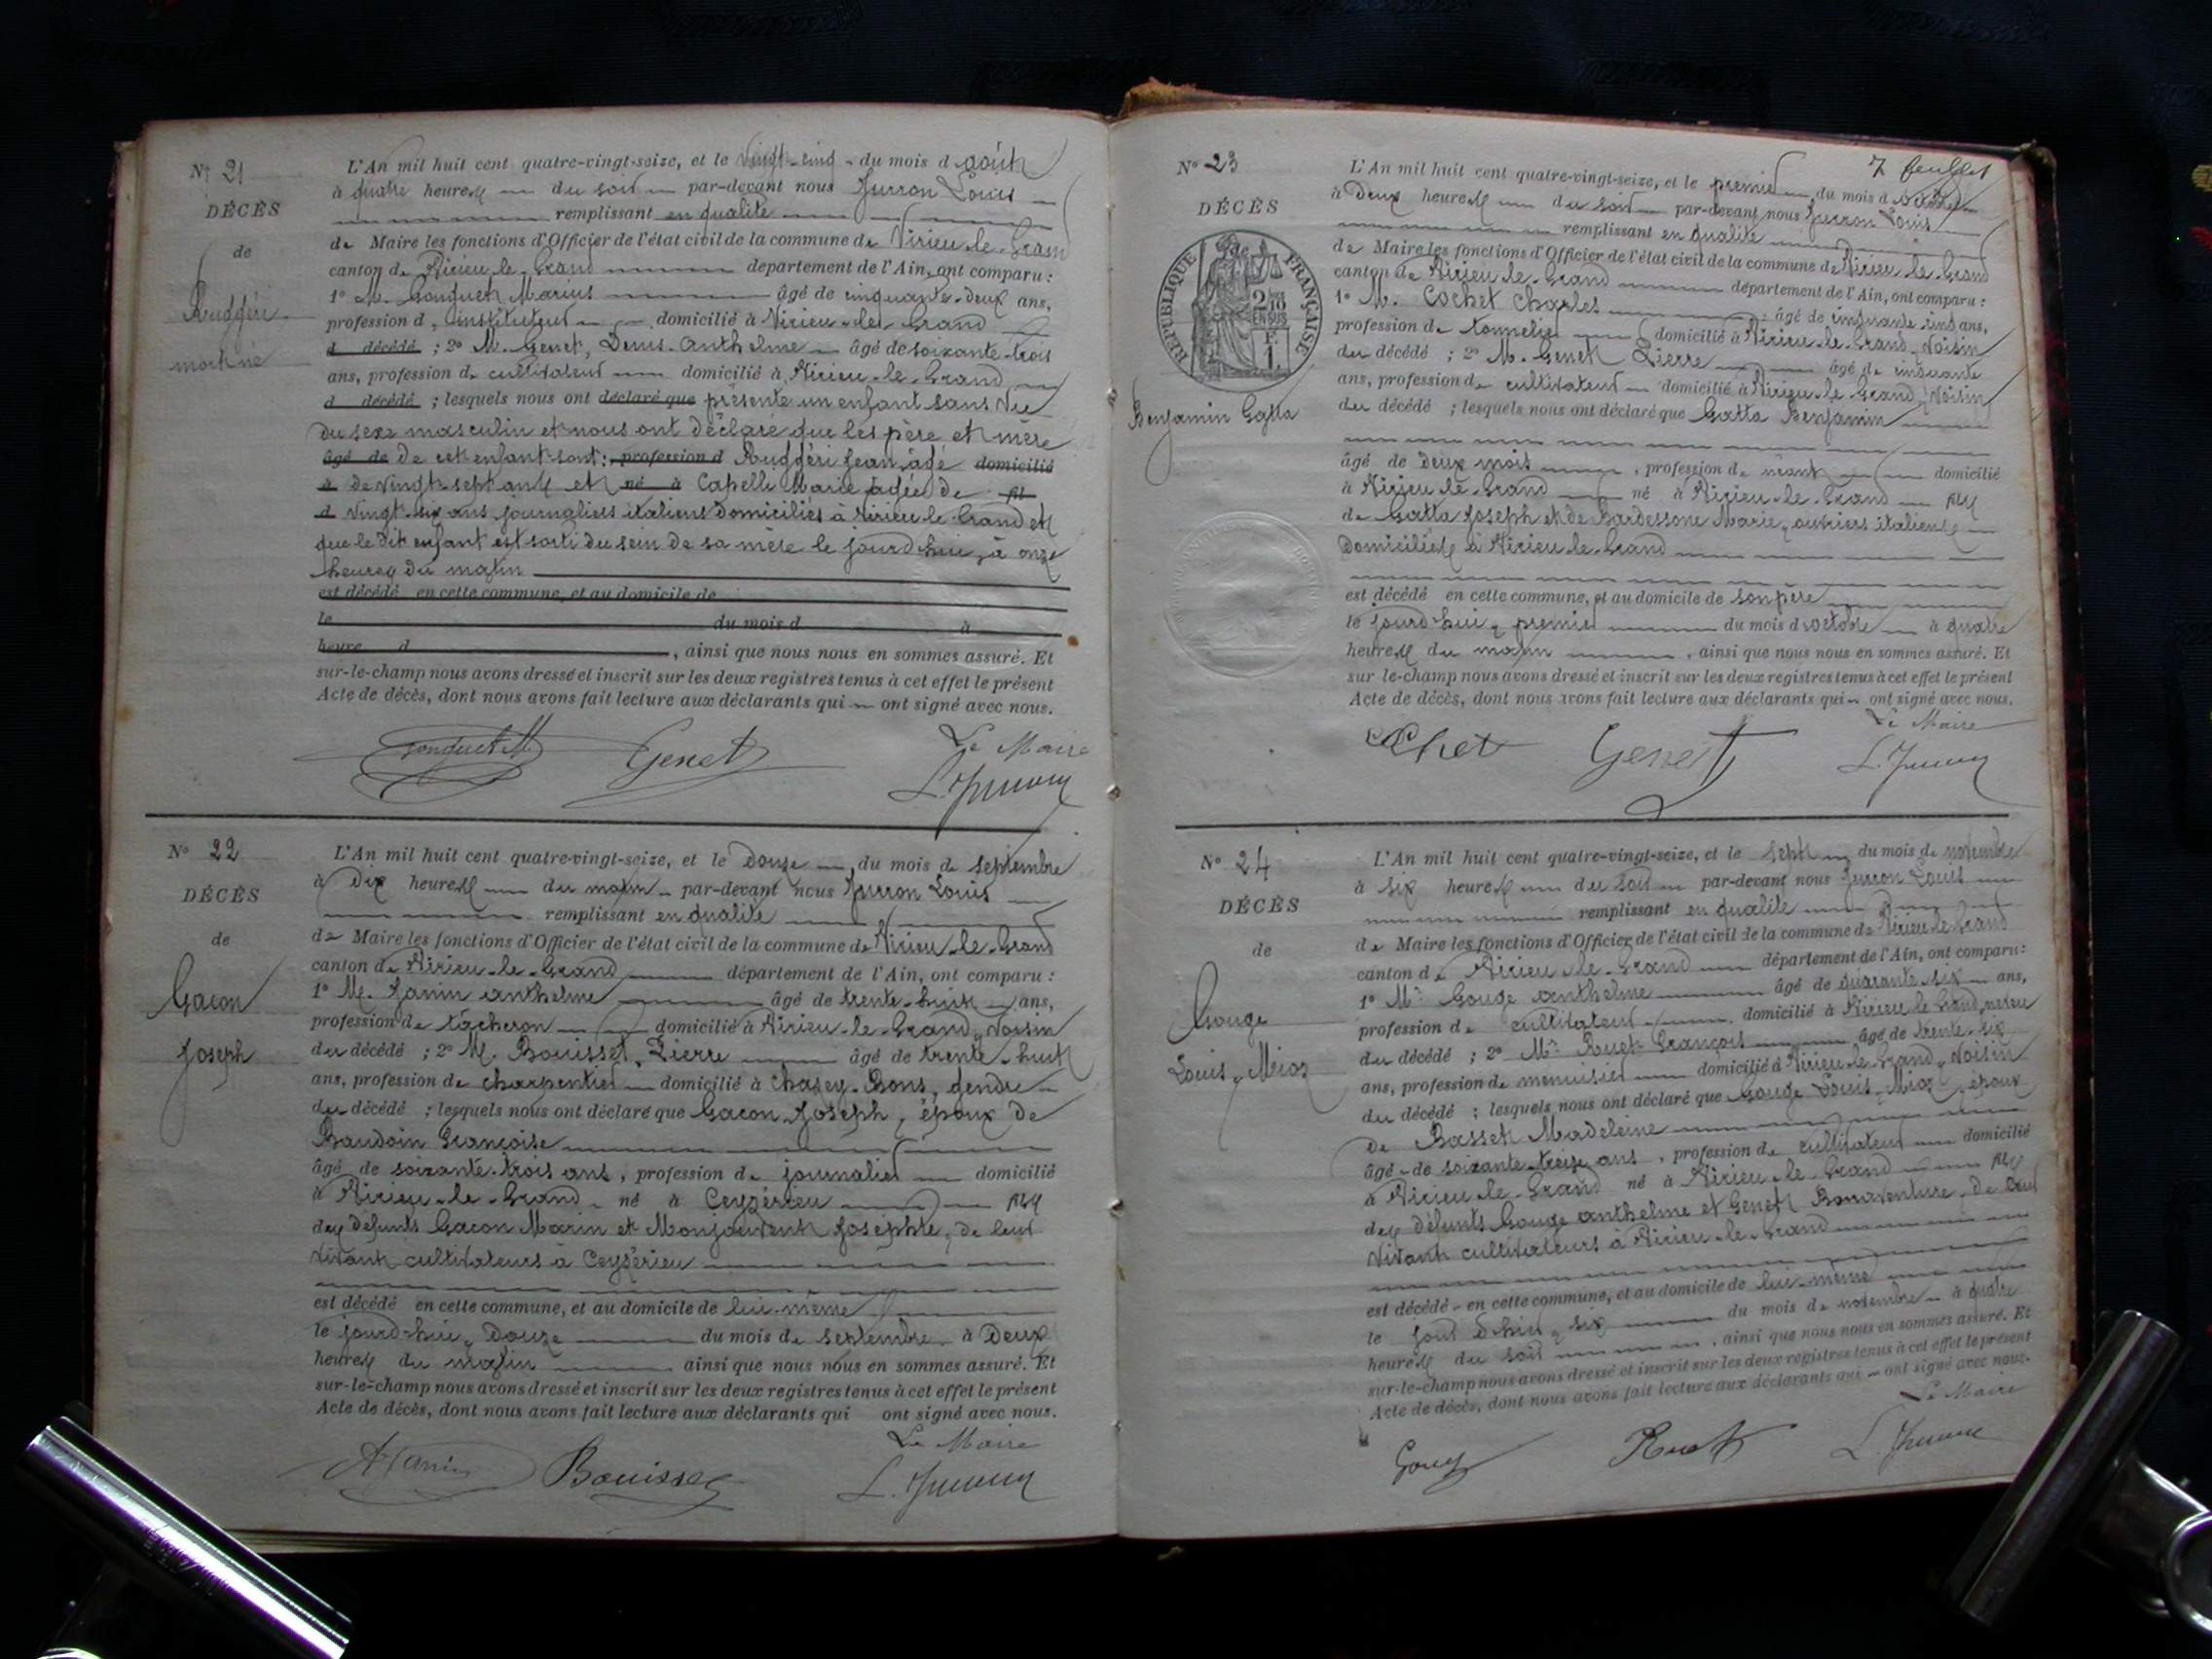 N° 21
DÉCÈS
de
Ruggéri
mort né
L'An mil huit cent quatre-vingt-seize, et le vingt-cinq du mois d'août
à quatre heures du soir par-devant nous Juvron Louis
remplissant en qualité
de Maire les fonctions d'Officier de l'état civil de la commune de Virieu-le-Grand
canton de Virieu-le-Grand département de l'Ain, ont comparu :
1° M. Gonguet Marius âgé de cinquante-deux ans,
profession d'instituteur domicilié à Virieu-le-Grand
d décédé ; 2° M. Genet, Denis-Anthelme âgé de soixante-trois
ans, profession de cultivateur domicilié à Virieu-le-Grand
d décédé ; lesquels nous ont déclaré que présenté un enfant sans vie
du sexe masculin et nous ont déclaré que les père et mère
âgé de de cet enfant sont : profession d Ruggéri Jean, âgé domicilié
à de vingt-sept ans et né à Capelli Marie âgée de fil
d vingt-six ans journaliers italiens domiciliés à Virieu-le-Grand et
que le dit enfant est sorti du sein de sa mère le jourd'hui, à onze
heures du matin
est décédé en cette commune, et au domicile de
le du mois d à
heure d , ainsi que nous nous en sommes assuré. Et
sur-le-champ nous avons dressé et inscrit sur les deux registres tenus à cet effet le présent
Acte de décès, dont nous avons fait lecture aux déclarants qui ont signé avec nous.
Le Maire
Genet
N° 22
DÉCÈS
de
Gacon
Joseph
L'An mil huit cent quatre-vingt-seize, et le douze du mois de septembre
à dix heures du matin par-devant nous Juvron Louis
remplissant en qualité
de Maire les fonctions d'Officier de l'état civil de la commune de Virieu-le-Grand
canton de Virieu-le-Grand département de l'Ain, ont comparu :
1° M. Janin Anthelme âgé de trente-huit ans,
profession de tâcheron domicilié à Virieu-le-Grand, voisin
du décédé ; 2° M. Bouisset, Pierre âgé de trente-huit
ans, profession de charpentier domicilié à Chazey-Bons, gendre
du décédé ; lesquels nous ont déclaré que Gacon Joseph, époux de
Baudoin Françoise
âgé de soixante-trois ans, profession de journalier domicilié
à Virieu-le-Grand né à Ceyzérieu fils
des défunts Gacon Marin et Monjouvent Josephte, de leur
vivant cultivateurs à Ceyzérieu
est décédé en cette commune, et au domicile de lui-même
le jourd'hui, douze du mois de septembre à deux
heures du matin ainsi que nous nous en sommes assuré. Et
sur-le-champ nous avons dressé et inscrit sur les deux registres tenus à cet effet le présent
Acte de décès, dont nous avons fait lecture aux déclarants qui ont signé avec nous.
Le Maire
A. Janin Bouisset
7 feuillet
N° 23
DÉCÈS
de
RÉPUBLIQUE FRANÇAISE
2/10 EN SUS
F. 1
Benjamin Gatta
L'An mil huit cent quatre-vingt-seize, et le premier du mois d'octobre
à deux heures du soir par-devant nous Juvron Louis
remplissant en qualité
de Maire les fonctions d'Officier de l'état civil de la commune de Virieu-le-Grand
canton de Virieu-le-Grand département de l'Ain, ont comparu :
1° M. Cochet Charles âgé de cinquante cinq ans,
profession de tonnelier domicilié à Virieu-le-Grand, voisin
du décédé ; 2° M. Genet Pierre âgé de cinquante
ans, profession de cultivateur domicilié à Virieu-le-Grand, voisin
du décédé ; lesquels nous ont déclaré que Gatta Benjamin
âgé de deux mois, profession de néant domicilié
à Virieu-le-Grand né à Virieu-le-Grand fils
de Gatta Joseph et de Bardessone Marie, ouvriers italiens
domiciliés à Virieu-le-Grand
est décédé en cette commune, et au domicile de son père
le jourd'hui, premier du mois d'octobre à quatre
heures du matin, ainsi que nous nous en sommes assuré. Et
sur-le-champ nous avons dressé et inscrit sur les deux registres tenus à cet effet le présent
Acte de décès, dont nous avons fait lecture aux déclarants qui ont signé avec nous.
Le Maire
Cochet Genet
N° 24
DÉCÈS
de
Gouge
Louis-Mioz
L'An mil huit cent quatre-vingt-seize, et le sept du mois de novembre
à six heures du soir par-devant nous Juvron Louis
remplissant en qualité
de Maire les fonctions d'Officier de l'état civil de la commune de Virieu-le-Grand
canton de Virieu-le-Grand département de l'Ain, ont comparu :
1° Mr Gouge Anthelme âgé de quarante-six ans,
profession de cultivateur domicilié à Virieu-le-Grand, neveu
du décédé ; 2° Mr Ruet François âgé de trente-six
ans, profession de menuisier domicilié à Virieu-le-Grand, voisin
du décédé ; lesquels nous ont déclaré que Gouge Louis-Mioz, époux
de Basset Madeleine
âgé de soixante-treize ans, profession de cultivateur domicilié
à Virieu-le-Grand né à Virieu-le-Grand fils
des défunts Gouge Anthelme et Genet Bonaventure, de leur
vivant cultivateurs à Virieu-le-Grand
est décédé en cette commune, et au domicile de lui-même
le jour d'hier, six du mois de novembre à quatre
heures du soir, ainsi que nous nous en sommes assuré. Et
sur-le-champ nous avons dressé et inscrit sur les deux registres tenus à cet effet le présent
Acte de décès, dont nous avons fait lecture aux déclarants qui ont signé avec nous.
Le Maire
Gouge Ruet